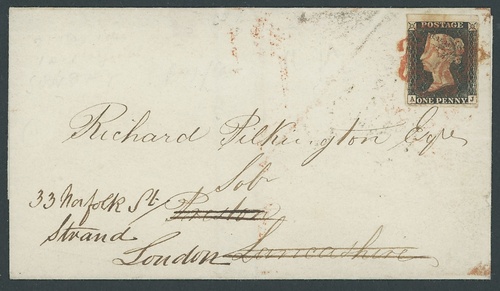 POSTAGE
A ONE PENNY J
Richard Pilkington Esqr
Solr
33 Norfolk St Preston
Strand
London Lancashire